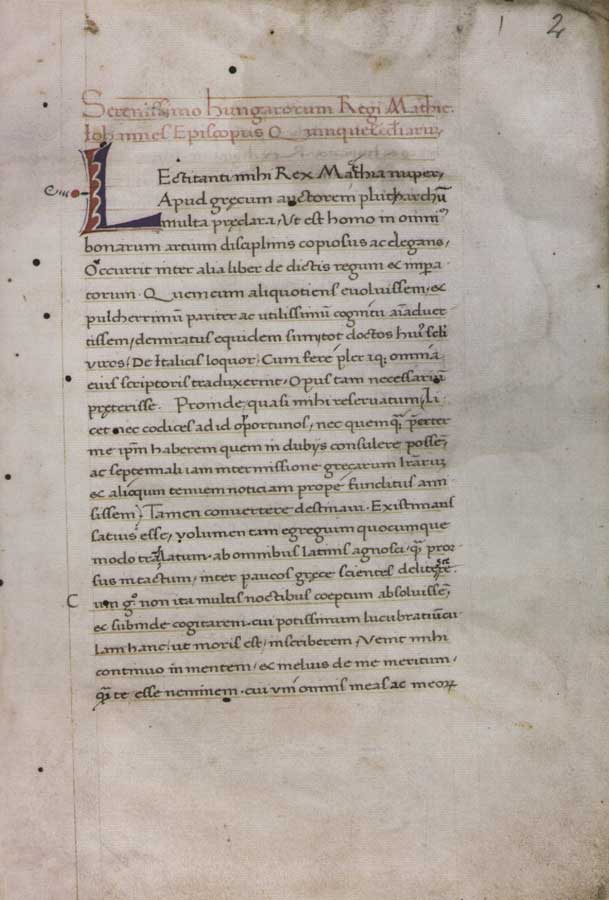 1 2
Serenissimo hungarorum Regi Mathie.
Iohannes Episcopus Quinqueecclesiarum
LEctitanti mihi Rex Mathia nuper,
Apud grecum auctorem plutharchū
multa pręclara, Vt est homo in omni
bonarum artium disciplinis copiosus ac elegans,
Occurrit inter alia liber de dictis regum & impera
torum. Quem cum aliquotiens euoluissem, &
pulcherrimū pariter ac utilissimū cognitu aīaduer
tissem, demiratus equidem sum, tot doctos huiꝰ sęli
uiros, De Italicis loquor, Cum fere pler aq; omnia
eius scriptoris traduxerint, Opus tam necessariū
pręterisse. Proinde, quasi mihi reseruatum, Li
cet nec codices ad id oportunos, nec quemq̄ pręter
me ip̄m haberem quem in dubijs consulere possē,
ac septennali iam intermissione gręcarum lr̄arum
& alioqui tenuem noticiam prope funditus ami
sissem, Tamen conuertere destinaui. Existimans
satius esse, uolumen tam egregium quocumque
modo tralatum ab omnibus latinis agnosci, q̄ pror
sus intactum, inter paucos gręce scientes delitescere.
C um gͦ non ita multis noctibus coeptum absoluissē,
& subinde cogitarem cui potissimum lucubratiūcu
lam hanc, ut moris est, inscriberem, Venit mihi
continuo in mentem, & melius de me meritum,
q̄ te esse neminem, cui uni omnis meas ac meoꝝ